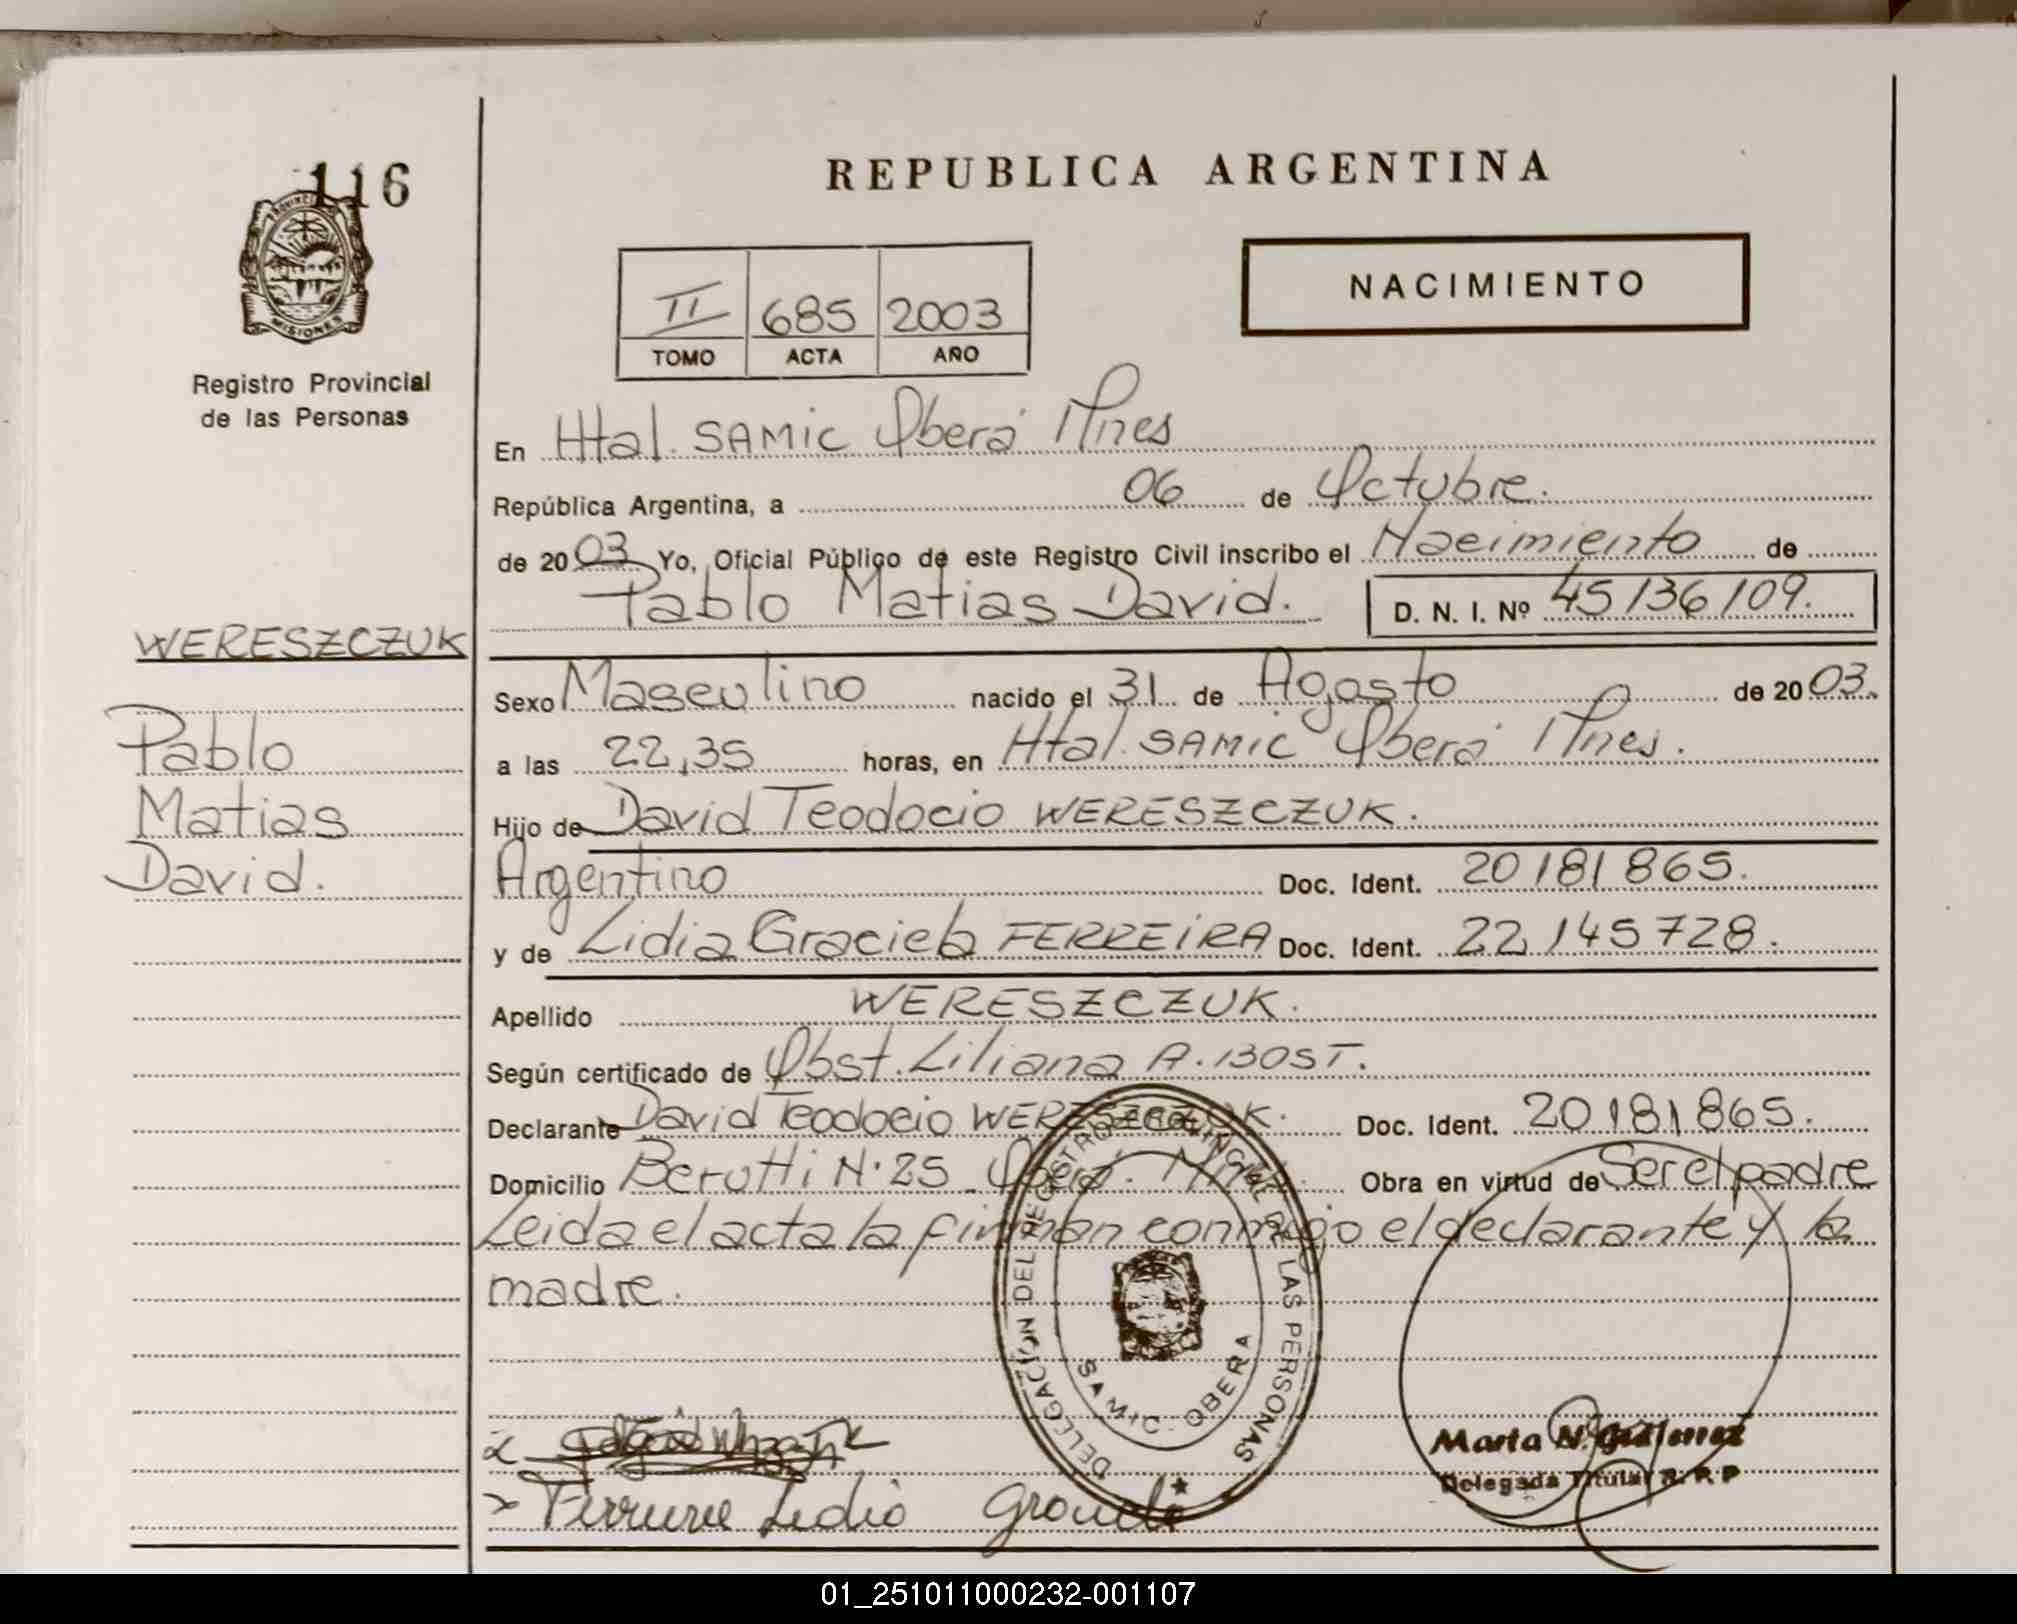 116
PROVINCIA
MISIONES
Registro Provincial
de las Personas
REPUBLICA ARGENTINA
NACIMIENTO
II 685 2003
TOMO ACTA AÑO
En Htal. SAMIC Oberá Mnes
República Argentina, a 06 de Octubre.
de 2003 Yo, Oficial Público de este Registro Civil inscribo el Nacimiento de
Pablo Matias David. D. N. I. Nº 45136109.
WERESZCZUK
Pablo
Matias
David.
Sexo Masculino nacido el 31 de Agosto de 2003.
a las 22,35 horas, en Htal. SAMIC Oberá Mnes.
Hijo de David Teodocio WERESZCZUK.
Argentino Doc. Ident. 20181865.
y de Lidia Graciela FERREIRA Doc. Ident. 22145728.
Apellido WERESZCZUK.
Según certificado de Obst. Liliana A. BOST.
Declarante David Teodocio WERESZCZUK. Doc. Ident. 20181865.
Domicilio Berutti N. 25 Oberá. Mnes. Obra en virtud de Ser el padre
Leida el acta la firman conmigo el declarante y la
madre.
DELEGACION DEL REGISTRO PROVINCIAL DE LAS PERSONAS
SAMIC. OBERA
Marta N. Gutierrez
Delegada Titular R. P. P
Lidia
01_251011000232-001107